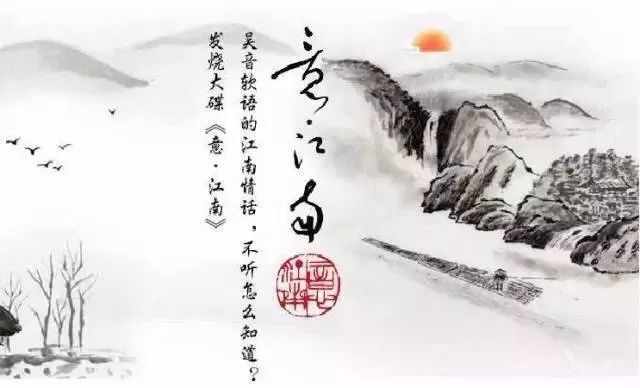 意江南
吴音软语的江南情话，不听怎么知道？
发烧大碟《意·江南》
意江南